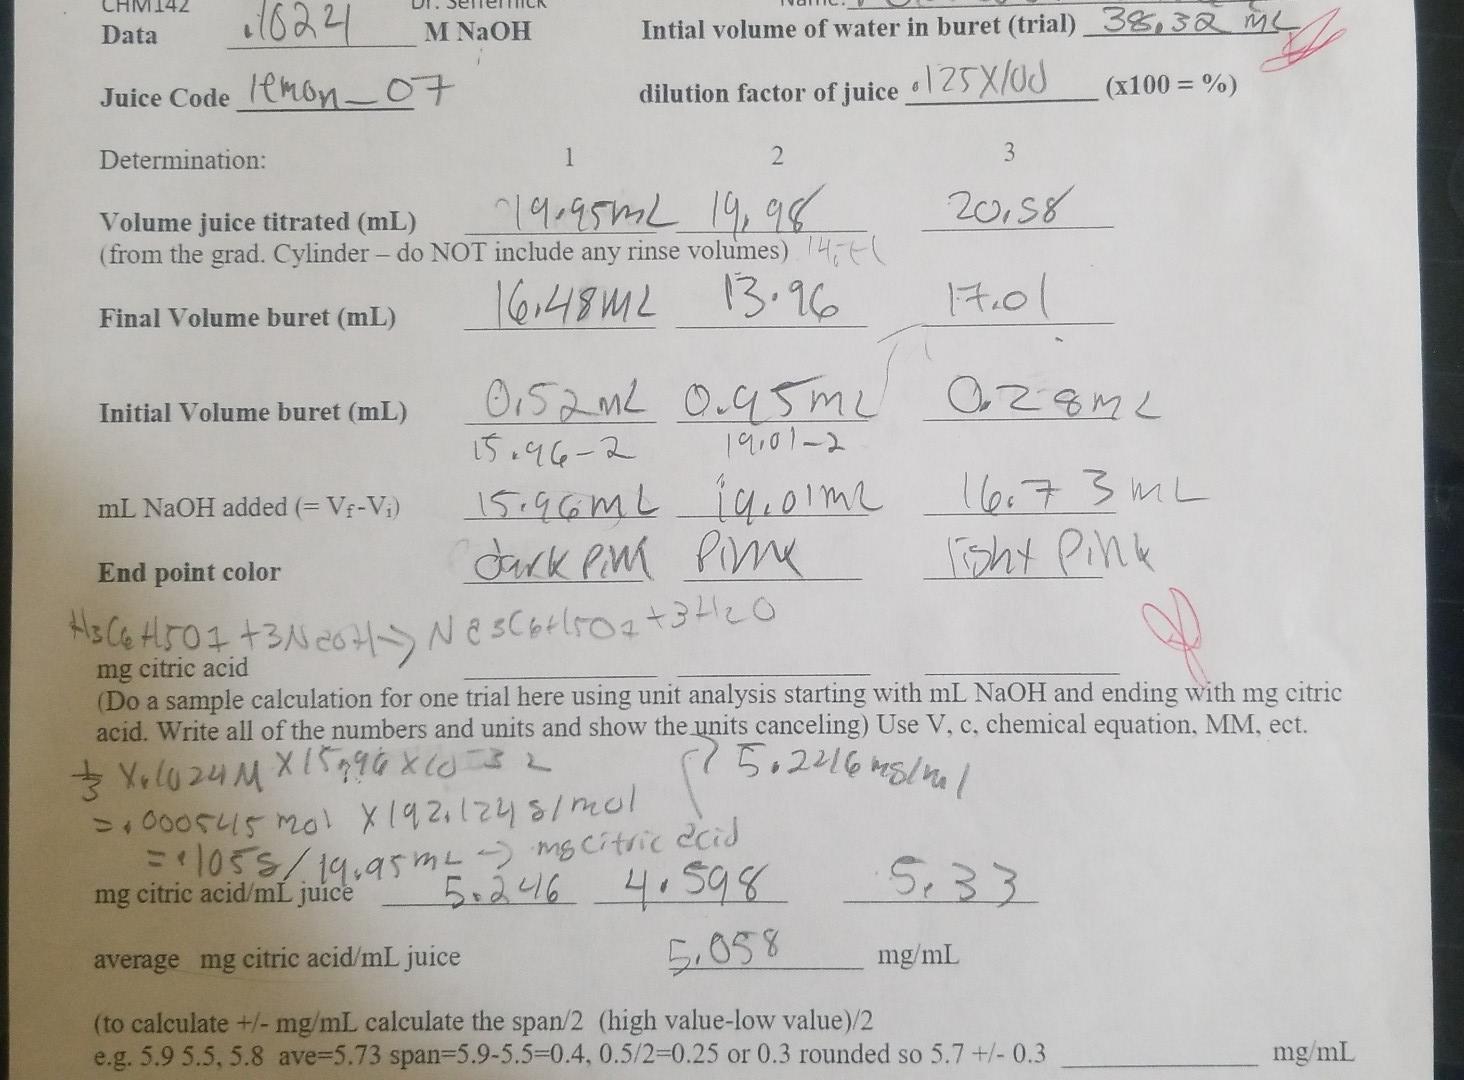 CHM142 Dr. Seffernick Name:
Data .1024 M NaOH Intial volume of water in buret (trial) 38.32 mL
Juice Code lemon_07 dilution factor of juice .125X100 (x100 = %)
Determination: 1 2 3
Volume juice titrated (mL) 19.95mL 19.98 20.58
(from the grad. Cylinder – do NOT include any rinse volumes)
Final Volume buret (mL) 16.48mL 13.96 17.01
Initial Volume buret (mL) 0.52mL 0.95mL 0.28mL
15.96-2 19.01-2
mL NaOH added (= Vf-Vi) 15.96mL 19.01mL 16.73mL
End point color dark pink Pink light Pink
H3C6H5O7 + 3NaOH → Na3C6H5O7 + 3H2O
mg citric acid
(Do a sample calculation for one trial here using unit analysis starting with mL NaOH and ending with mg citric
acid. Write all of the numbers and units and show the units canceling) Use V, c, chemical equation, MM, ect.
1/3 X .1024M X 15.96 X 10-3 L 5.2216 mg/ml
= .000545 mol X 192.124 g/mol
= .105g/19.95mL → mg citric acid
mg citric acid/mL juice 5.246 4.598 5.33
average mg citric acid/mL juice 5.058 mg/mL
(to calculate +/- mg/mL calculate the span/2 (high value-low value)/2
e.g. 5.9 5.5, 5.8 ave=5.73 span=5.9-5.5=0.4, 0.5/2=0.25 or 0.3 rounded so 5.7 +/- 0.3 mg/mL